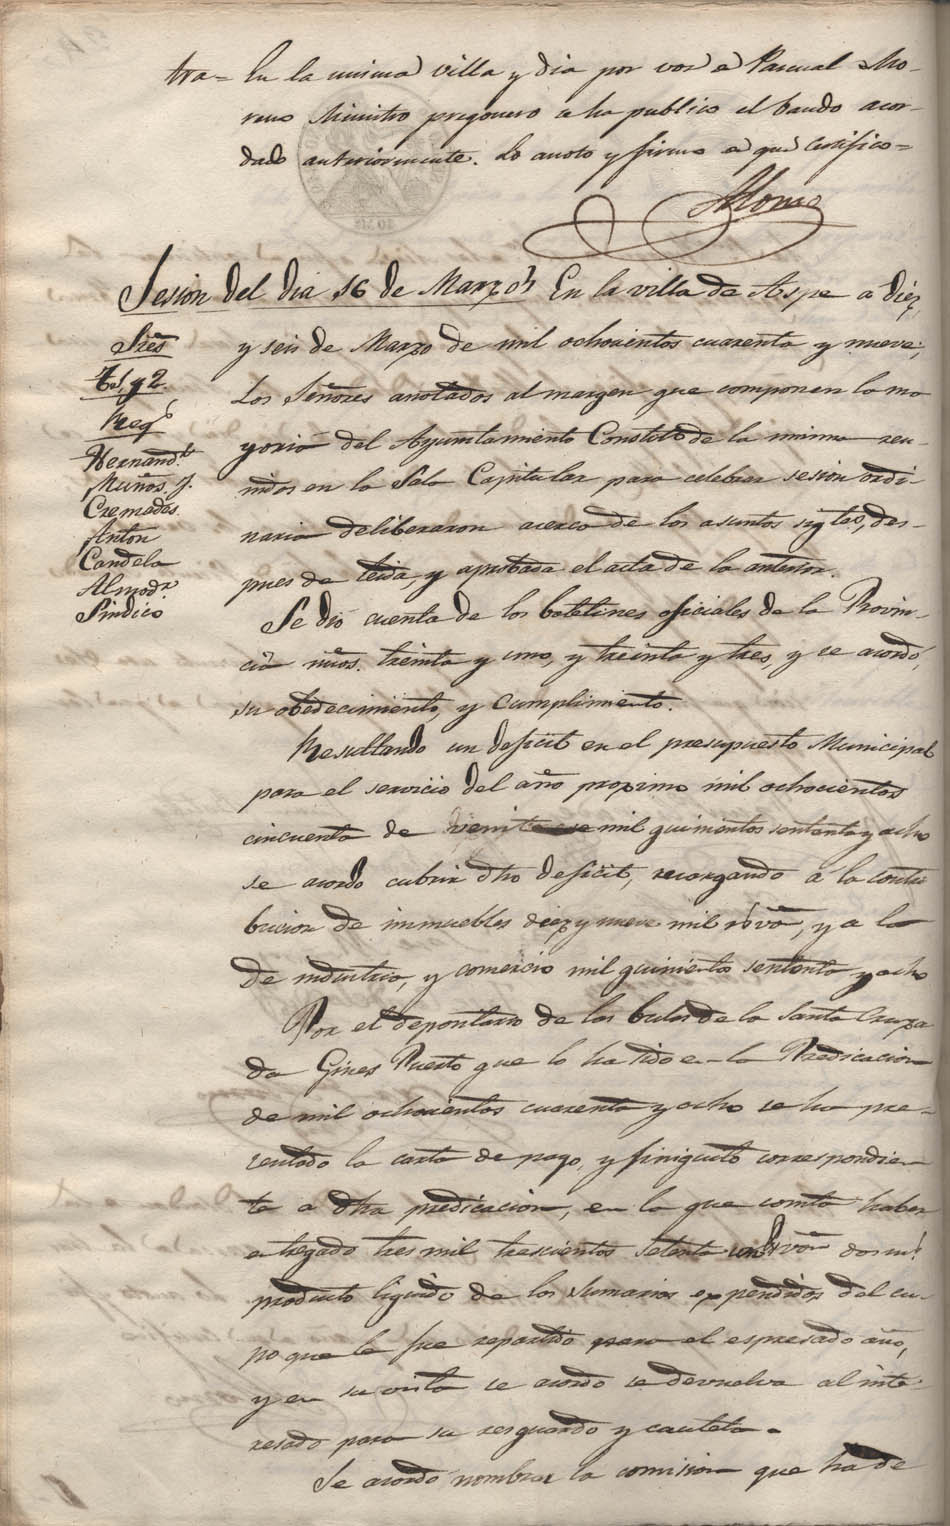 tra= En la misma villa y dia por voz de Pascual Mo-
reno Ministro pregonero se ha publico el bando acor-
dado anteriormente. Lo anoto y firmo de que certifico=
Alonso
Sesion del dia 16 de Marzo En la villa de Aspe a diez,
y seis de Marzo de mil ochocientos cuarenta y nueve;
Los Señores anotados al margen que componen la ma
yoria del Ayuntamiento Constl. de la misma reu-
nidos en la Sala Capitular para celebrar sesion ordi-
naria deliberaron acerca de los asuntos sigtes, des-
pues de leida, y aprobada el acta de la anterior.
Sres
Tes. 1 y 2.
Reg.s
Hernand.z
Muños. J.
Cremades
Anton
Candela
Almod.r
Sindico
Se dió cuenta de los boletines oficiales de la Provin-
cia nùos. treinta y uno, y treinta y tres, y se acordó
su obedecimiento, y cumplimiento.
Resultando un deficit en el presupuesto Municipal
para el servicio del año proximo mil ochocientos
cincuenta de veinte mil quinientos setenta y ocho
se acordo cubrir dho deficit, recargando a la contri
bucion de inmuebles diez y nueve mil rs. von, y a la
de industria, y comercio mil quinientos setenta y ocho
Por el depositario de las bulas de la Santa Cruza
da Gines Puerto que lo ha sido en la Predicacion
de mil ochocientos cuarenta y ocho se ha pre-
sentado la carta de pago, y finiquito correspondien
te a dha predicacion, en la que consta haber
entregado tres mil trescientos setenta rs. von dos ms.
producto liquido de los sumarios expendidos del cu-
po que le fue repartido para el espresado año,
y en su vista se acordo se devuelva al inte-
resado para su resguardo y cautela.
Se acordó nombrar la comision que ha de